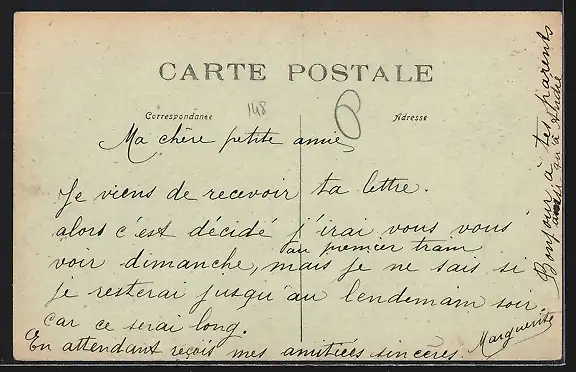 CARTE POSTALE
148
Correspondance
Adresse
Ma chère petite amie,
Je viens de recevoir ta lettre.
alors c'est décidé j'irai vous vous
voir dimanche, au premier train mais je ne sais si
je resterai jusqu'au lendemain soir
car ce serai long.
En attendant reçois mes amitiées sincères.
Marguerite
Bonjour à tes parents
ainsi qu'à André